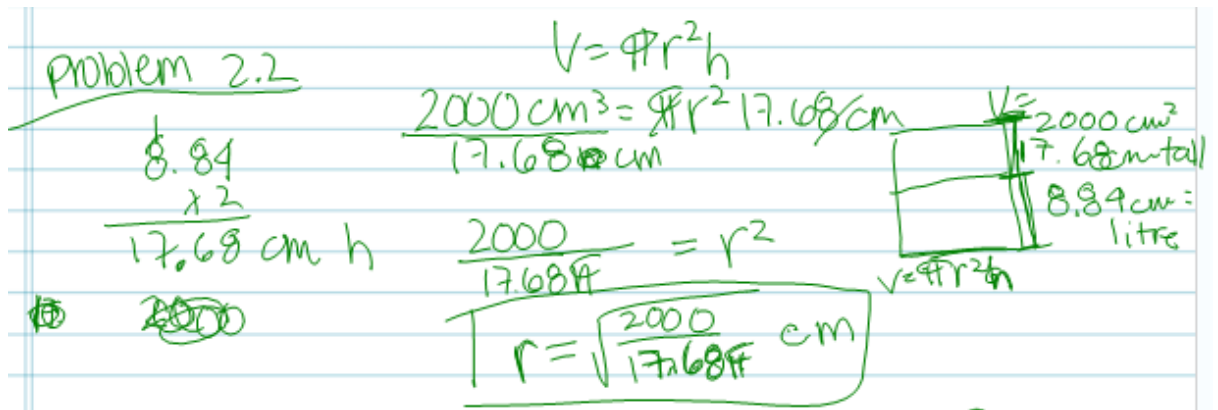 Problem 2.2
1
8.84
x2
17.68 cm h
V = πr²h
2000 cm³ = πr² 17.68 cm
17.68 cm
2000 = r²
17.68π
r = √2000 cm
17.68π
V=
2000 cm²
17.68cm tall
8.84 cm =
litre
V=πr²h